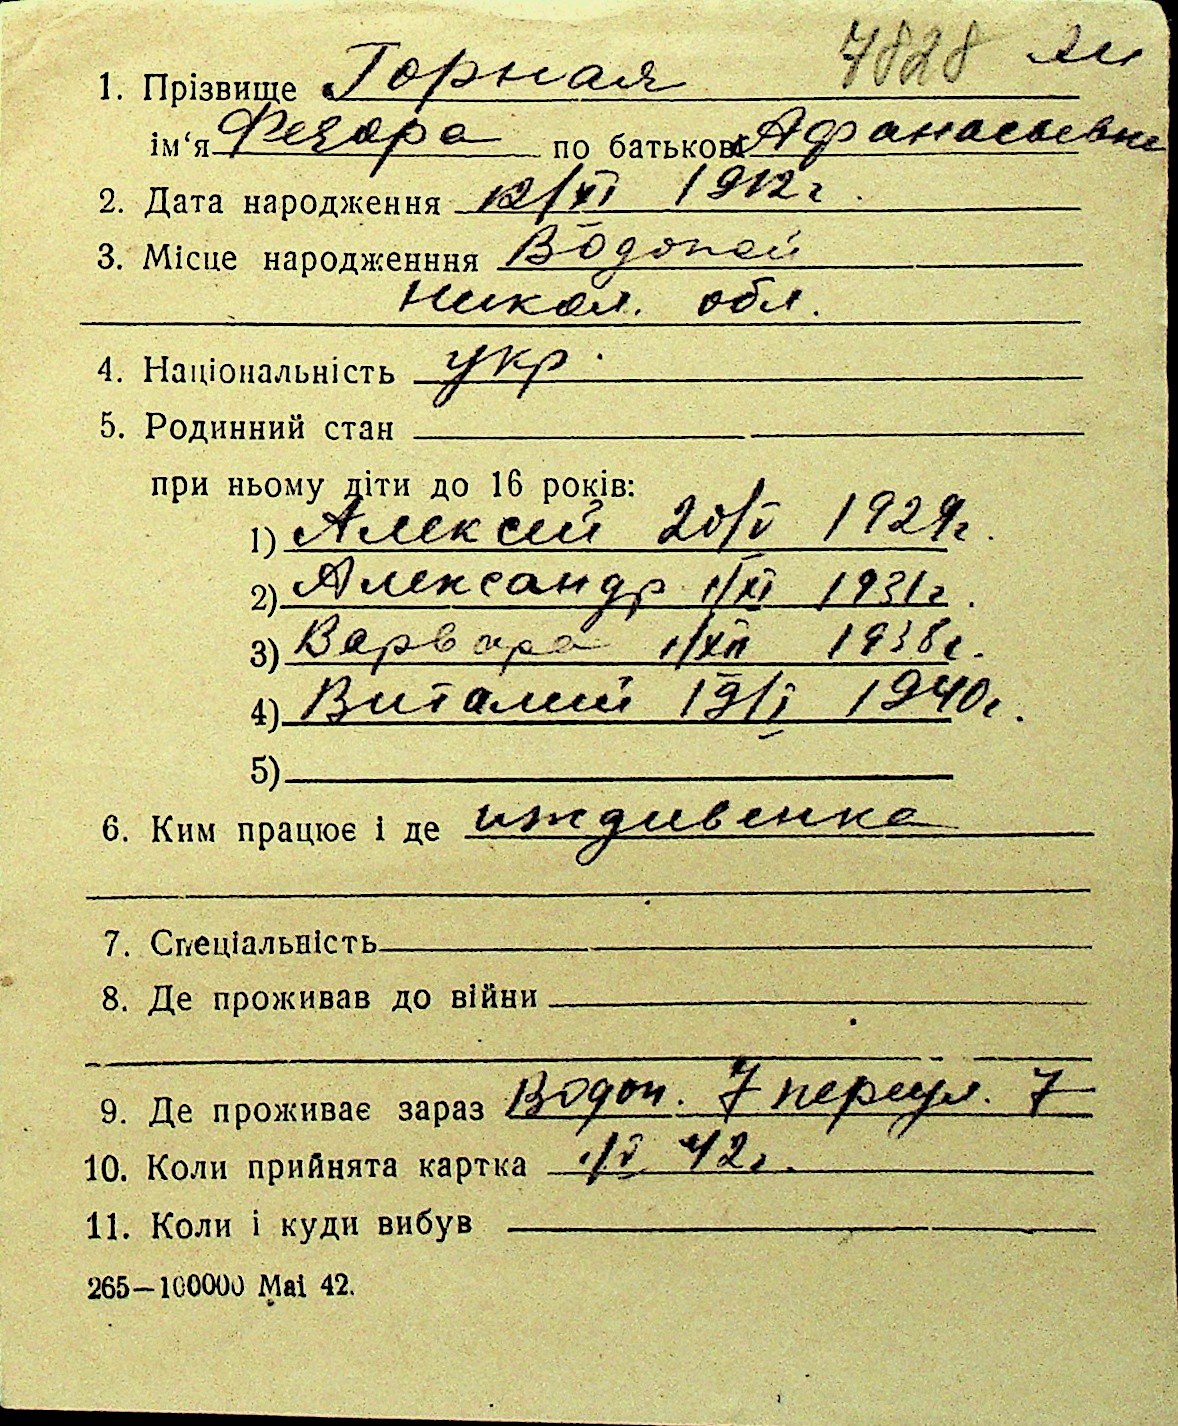 7828
1. Прізвище Горная
ім‘я Федора по батькові Афанасьевна
2. Дата народження 12/XI 1912 г.
3. Місце народженння Водопой
Никол. обл.
4. Національність укр.
5. Родинний стан
при ньому діти до 16 років:
1) Алексей 20/V 1929г.
2) Александр 1/XI 1931г.
3) Варвара 1/XII 1938г.
4) Виталий 19/I 1940г.
5)
6. Ким працює і де иждивенка
7. Спеціальність
8. Де проживав до війни
9. Де проживає зараз Водоп. 7 переул. 7
10. Коли прийнята картка 1/V 42г.
11. Коли і куди вибув
265—100000 Mai 42.